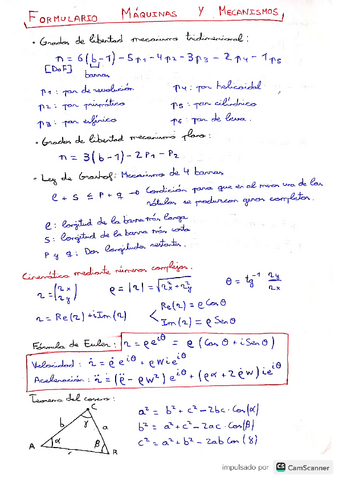 FORMULARIO MÁQUINAS Y MECANISMOS
• Grados de libertad mecanismo tridimensional:
n = 6(b-1) - 5p1 - 4p2 - 3p3 - 2p4 - 1p5
[DoF] barras
p1: par de revolución p4: par helicoidal
p2: par prismático p5: par cilíndrico
p3: par esférico p6: par de leva.
• Grados de libertad mecanismo plano:
n = 3(b-1) - 2P1 - P2
• Ley de Grashof: Mecanismo de 4 barras
l + s ≤ p + q → Condición para que en al menos una de las
rótulas se produzcan giros completos.
l: longitud de la barra más larga
s: longitud de la barra más corta
p y q: Dos longitudes restantes.
Cinemática mediante números complejos.
r = (rx ry) ρ = |r| = √rx²+ry² θ = tg⁻¹ ry/rx
r = Re(r) + i Im(r) < Re(r) = ρ Cosθ
Im(r) = ρ Senθ
Fórmula de Euler: r = ρe^iθ = ρ(Cosθ + iSenθ)
Velocidad: ṙ = ρ̇ e^iθ + ρwie^iθ
Aceleración: r̈ = (ρ̈ - ρw²)e^iθ + (ρα + 2ρ̇w)ie^iθ
Teorema del coseno:
C
b γ a
A α β B
a² = b² + c² - 2bc·Cos(α)
b² = a² + c² - 2ac·Cos(β)
c² = a² + b² - 2ab Cos(γ)
impulsado por CS CamScanner